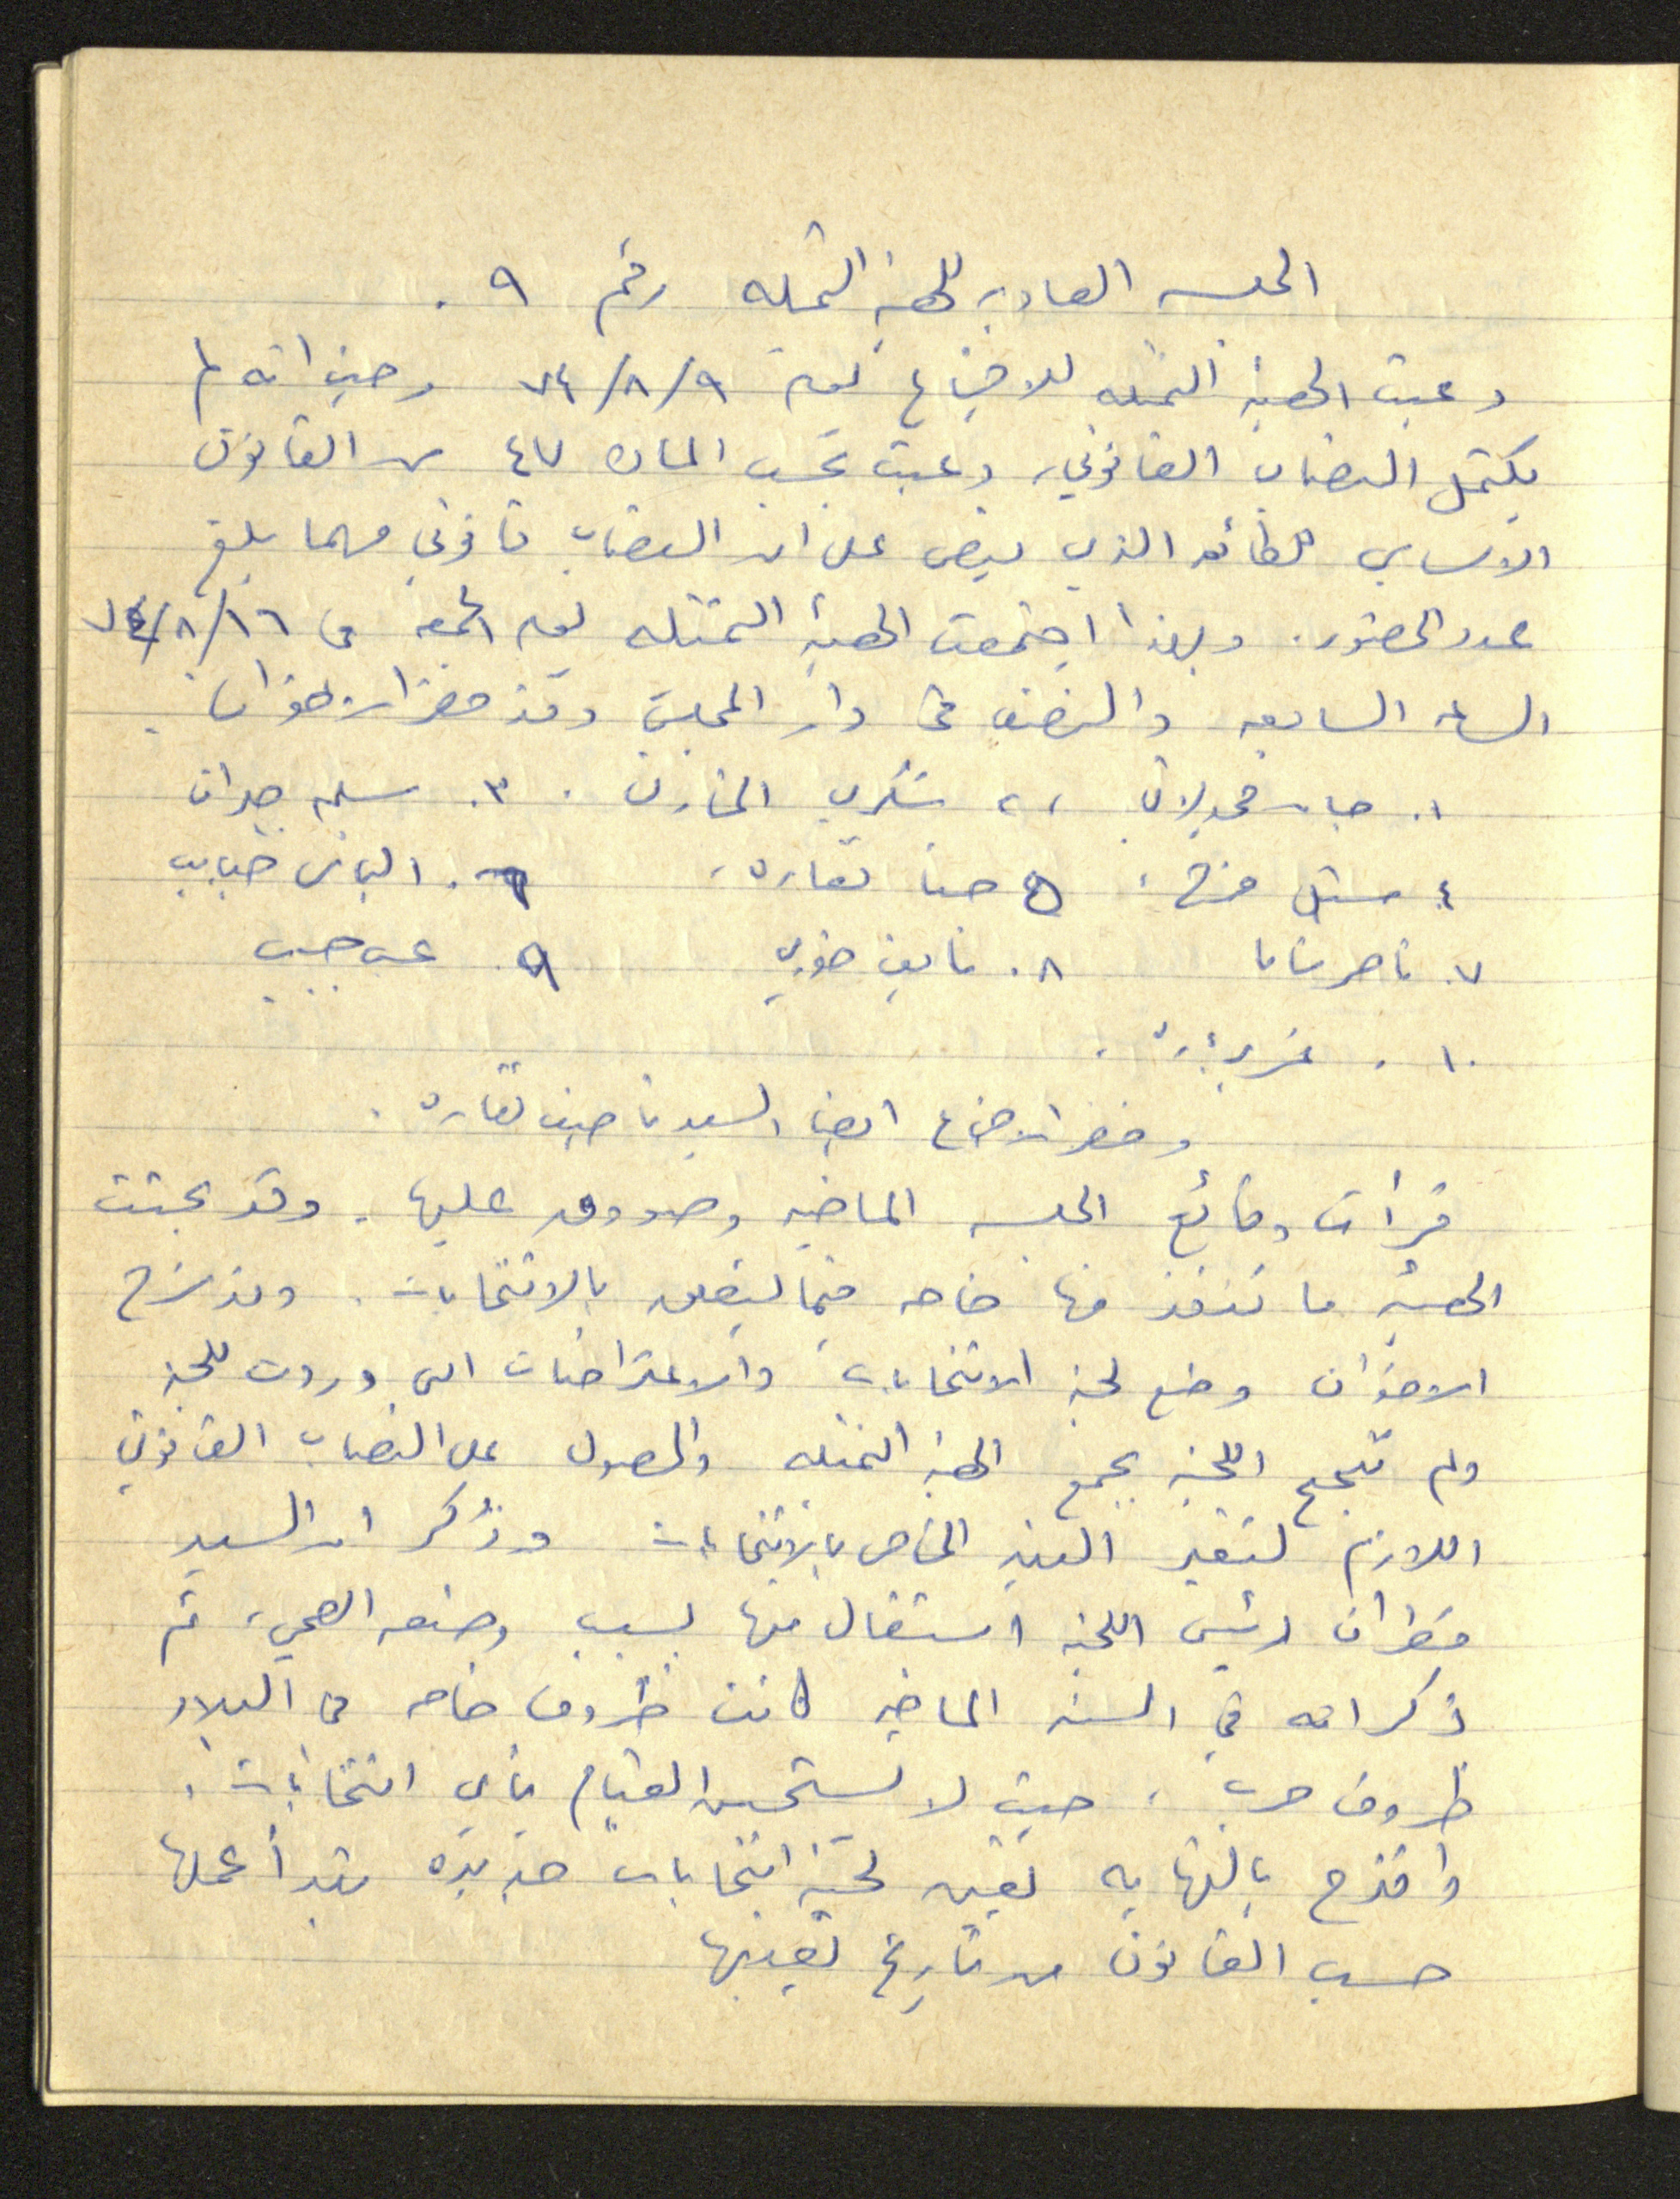 الجلسه العاديه للهيئة الممثله رقم ٩ .
دعيت الهيئة الممثله للاجتماع يوم ٩/٨/٧٤ وحيث انه لم
يكتمل النصاب القانوني، دعيت بحسب الماده ٤٧ من القانون
الاساسي للطائفه الذي ينص على ان النصاب قانوني مهما بلغ
عدد الحضور. وبهذا اجتمعت الهيئة الممثله يوم الجمعه في ١٦/٨/٧٤
الساعه السابعه والنصف في دار المجلس وقد حضر الاخوان:
١. حنا ٢، شكري الخازن . ٣. سليم جبران
٤ ميشل فرح، ٥ حنا نقاره، ٦. الياس خبايب
٧. ناصر شاما ٨. نايف خوري ٩. حبيب
١٠.
وحضر الاجتماع ايضا السيد ناصيف نقاره .
قرأت وقائع الجلسه الماضيه وصودق عليها . وقد بحثت
الهيئه ما تنفذ منها خاصه فيما يتعلق بالانتخابات . وقد شرح
الاخوان وضع لجنة الانتخابات والاعتراضات التي وردت للجنه
ولم تنجح اللجنه بجمع الهيئة الممثله والحصول على النصاب القانوني
اللازم لتغير البند الخاص بالانتخابات وذكر ان السيد
مطران رئيس اللجنه استقال منها بسبب وضعه الصحي، ثم
ذكر انه في السنه الماضيه كانت ظروف خاصه في البلاد
ظروف حرب ، حيث لا يستحسن القيام بأي انتخابات .
واقترح بالنهايه تعيين لجنة انتخابات جديده تبدأ عملها
حسب القانون من تاريخ تعيينها